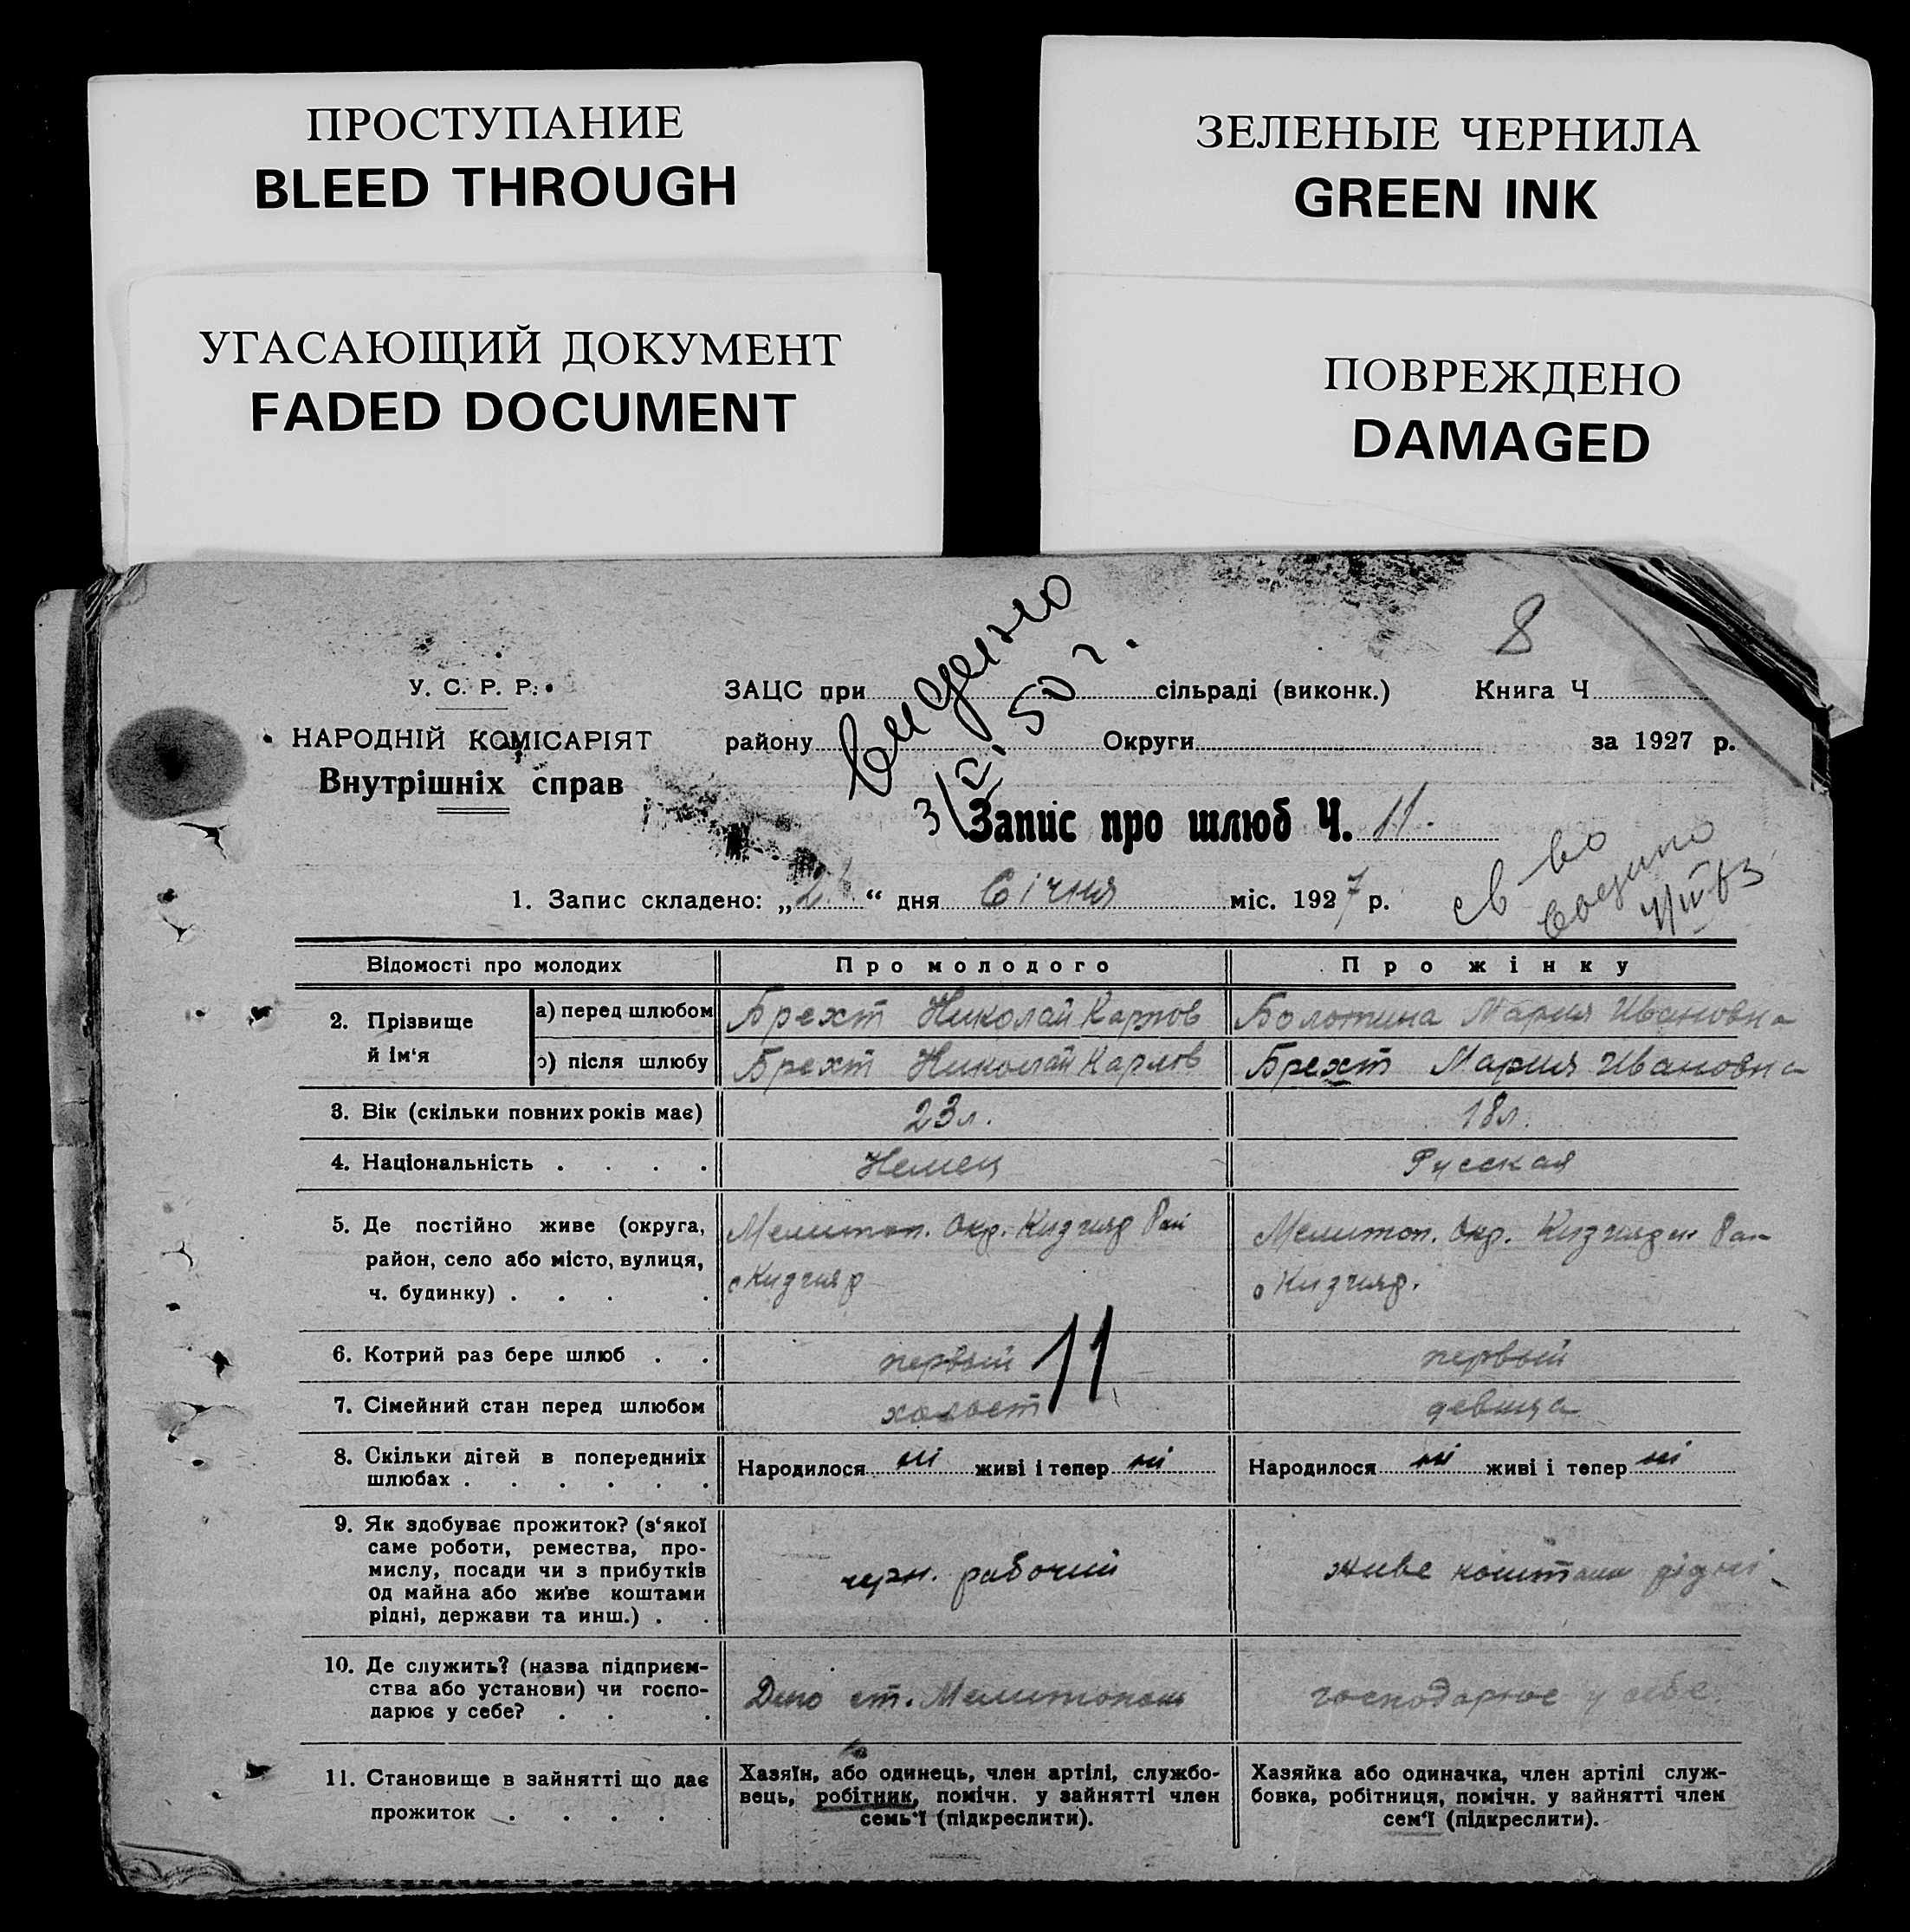 ПРОСТУПАНИЕ
BLEED THROUGH
ЗЕЛЕНЫЕ ЧЕРНИЛА
GREEN INK
УГАСАЮЩИЙ ДОКУМЕНТ
FADED DOCUMENT
ПОВРЕЖДЕНО
DAMAGED
8
У. С. Р. Р.
НАРОДНІЙ КОМІСАРІЯТ
Внутрішніх справ
ЗАЦС при сільраді (виконк.) Книга Ч
району Округи за 1927 р.
3/2. 50 г.
Запис про шлюб Ч. 11.
св во
1. Запис складено: „ “ дня Січня міс. 1927 р.
Відомості про молодих Про молодого Про жінку
2. Прізвище й ім‘я
а) перед шлюбом Брехт Николай Карлов Болотина Мария Ивановна
) після шлюбу Брехт Николай Карлов Брехт Мария Ивановна
3. Вік (скільки повних років має) 23 л. 18 л.
4. Національність . . . . Немец Русская
5. Де постійно живе (округа,
район, село або місто, вулиця,
ч. будинку) . . . .
Мелитоп. Окр. Кизияр Рай
с Кизияр
Мелитоп. Окр. Ра
Кизияр.
6. Котрий раз бере шлюб . . первый первый
11
7. Сімейний стан перед шлюбом холост девица
8. Скільки дітей в попередниіх
шлюбах . . . . . .
Народилося ні живі і тепер ні
Народилося ні живі і тепер ні
9. Як здобуває прожиток? (з‘якої
саме роботи, ремества, про-
мислу, посади чи з прибутків
од майна або живе коштами
рідні, держави та инш.) . .
черн. рабочий
живе коштами рідні
10. Де служить? (назва підприєм-
ства або установи) чи госпо-
дарює у себе? . . .
Депо ст. Мелитополь
господарює у себе.
11. Становище в зайнятті що дає
прожиток . . . .
Хазяїн, або одинець, член артілі, службо-
вець, робітник, помічн. у зайнятті член
семь‘ї (підкреслити).
Хазяйка або одиначка, член артілі служ-
бовка, робітниця, помічн. у зайнятті член
сем‘ї (підкреслити).